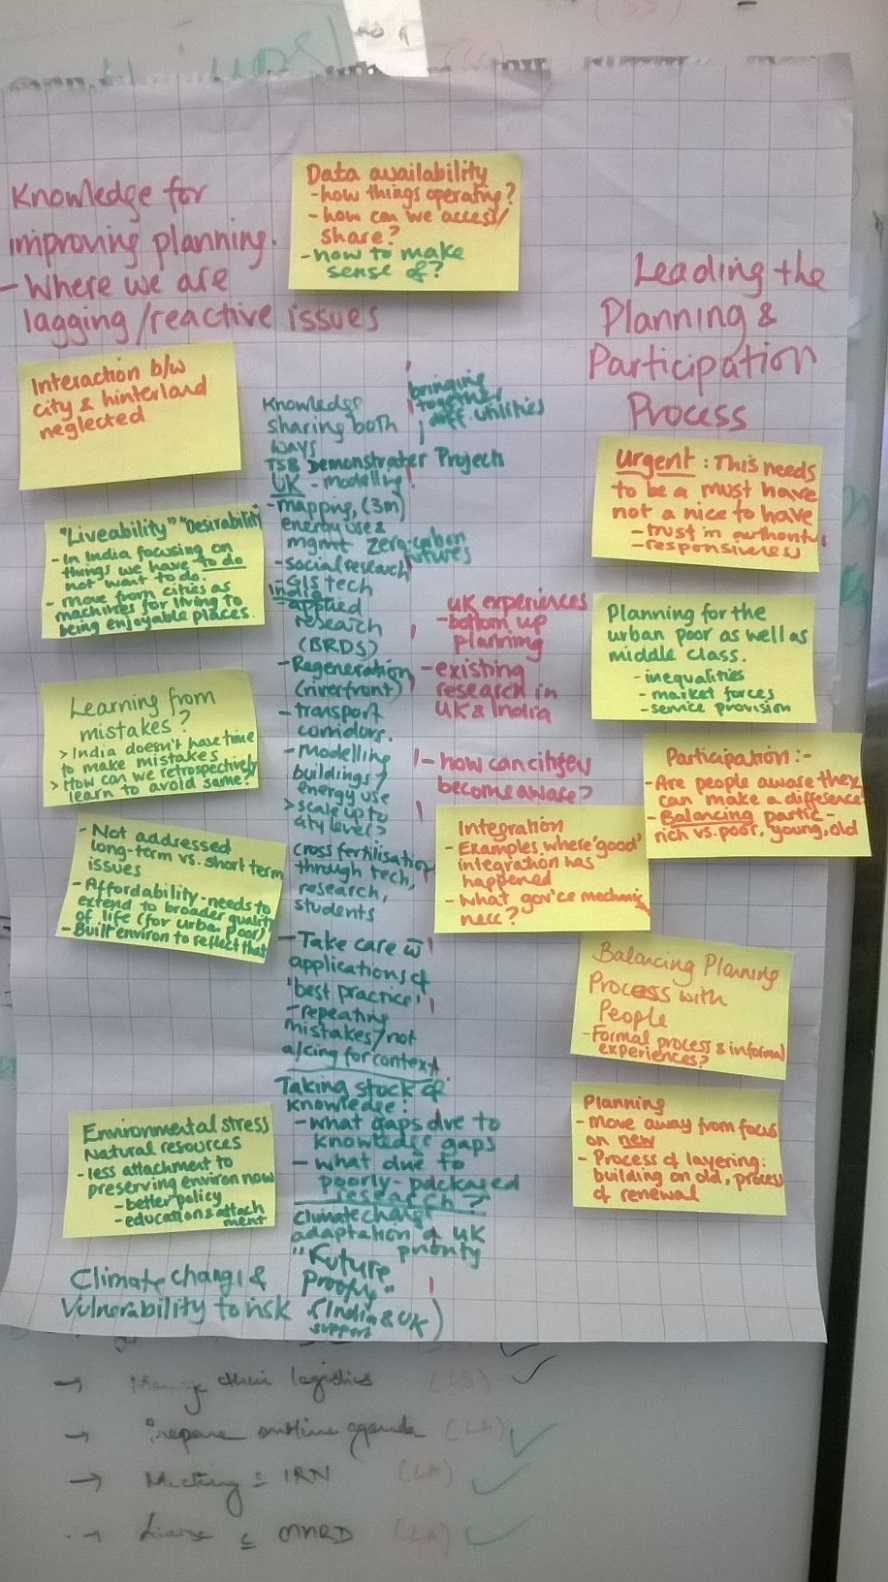 Knowledge for
improving planning.
- Where we are
lagging/reactive issues
Data availability
- how things operating?
- how can we access/
share?
- how to make
sense of?
Interaction b/w
city & hinterland
neglected
"Liveability" "Desirability"
- In India focusing on
things we have to do
not want to do.
- move from cities as
machines for living to
being enjoyable places.
Learning from
mistakes?
> India doesn't have time
to make mistakes
> How can we retrospectively
learn to avoid same?
- Not addressed
long-term vs. short term
issues
- Affordability - needs to
extend to broader quality
of life (for urban poor)
- Built environ to reflect that
Environmental stress
Natural resources
- less attachment to
preserving environ now
- better policy
- education & attach
ment
Climate change &
Vulnerability to risk
Knowledge
sharing both
ways
bringing
together
diff. utilities
TSB Demonstrater Project
UK - modelling
- mapping, (3m)
energy use &
mgmt zero-carbon
futures
- social research
- GIS tech
India
applied
research
(BRDS)
- Regeneration
(riverfront)
- transport
corridors.
- modelling
buildings/
energy use
> scale up to
city level?
cross fertilisation
through tech,
research,
students
- Take care w̄
applications of
'best practice'
- repeating
mistakes/not
a/cing for context
Taking stock of
knowledge:
- what gaps due to
knowledge gaps
- what due to
poorly-packaged
research?
climate change
adaptation of UK
priority
"Future
Proofing"
(India & UK)
support
UK experiences
- bottom up
planning
- existing
research in
UK & India
- how can citizens
become aware?
Leading the
Planning &
Participation
Process
Urgent: This needs
to be a must have
not a nice to have
- trust in authority
- responsiveness
Planning for the
urban poor as well as
middle class.
- inequalities
- market forces
- service provision
Participation:-
- Are people aware they
can make a difference
- Balancing partic -
rich vs. poor, young, old
Integration
- Examples where 'good'
integration has
happened
- what gov'ce mechanic
necc?
Balancing Planning
Process with
People
- Formal process & informal
experiences?
Planning
- Move away from focus
on new
- Process of layering:
building on old, process
of renewal
→ their logistics
→ Prepare outline agenda (LA)
→ Meeting c̄ IRN (LA)
→ Liaise c̄ MNRD (LA)